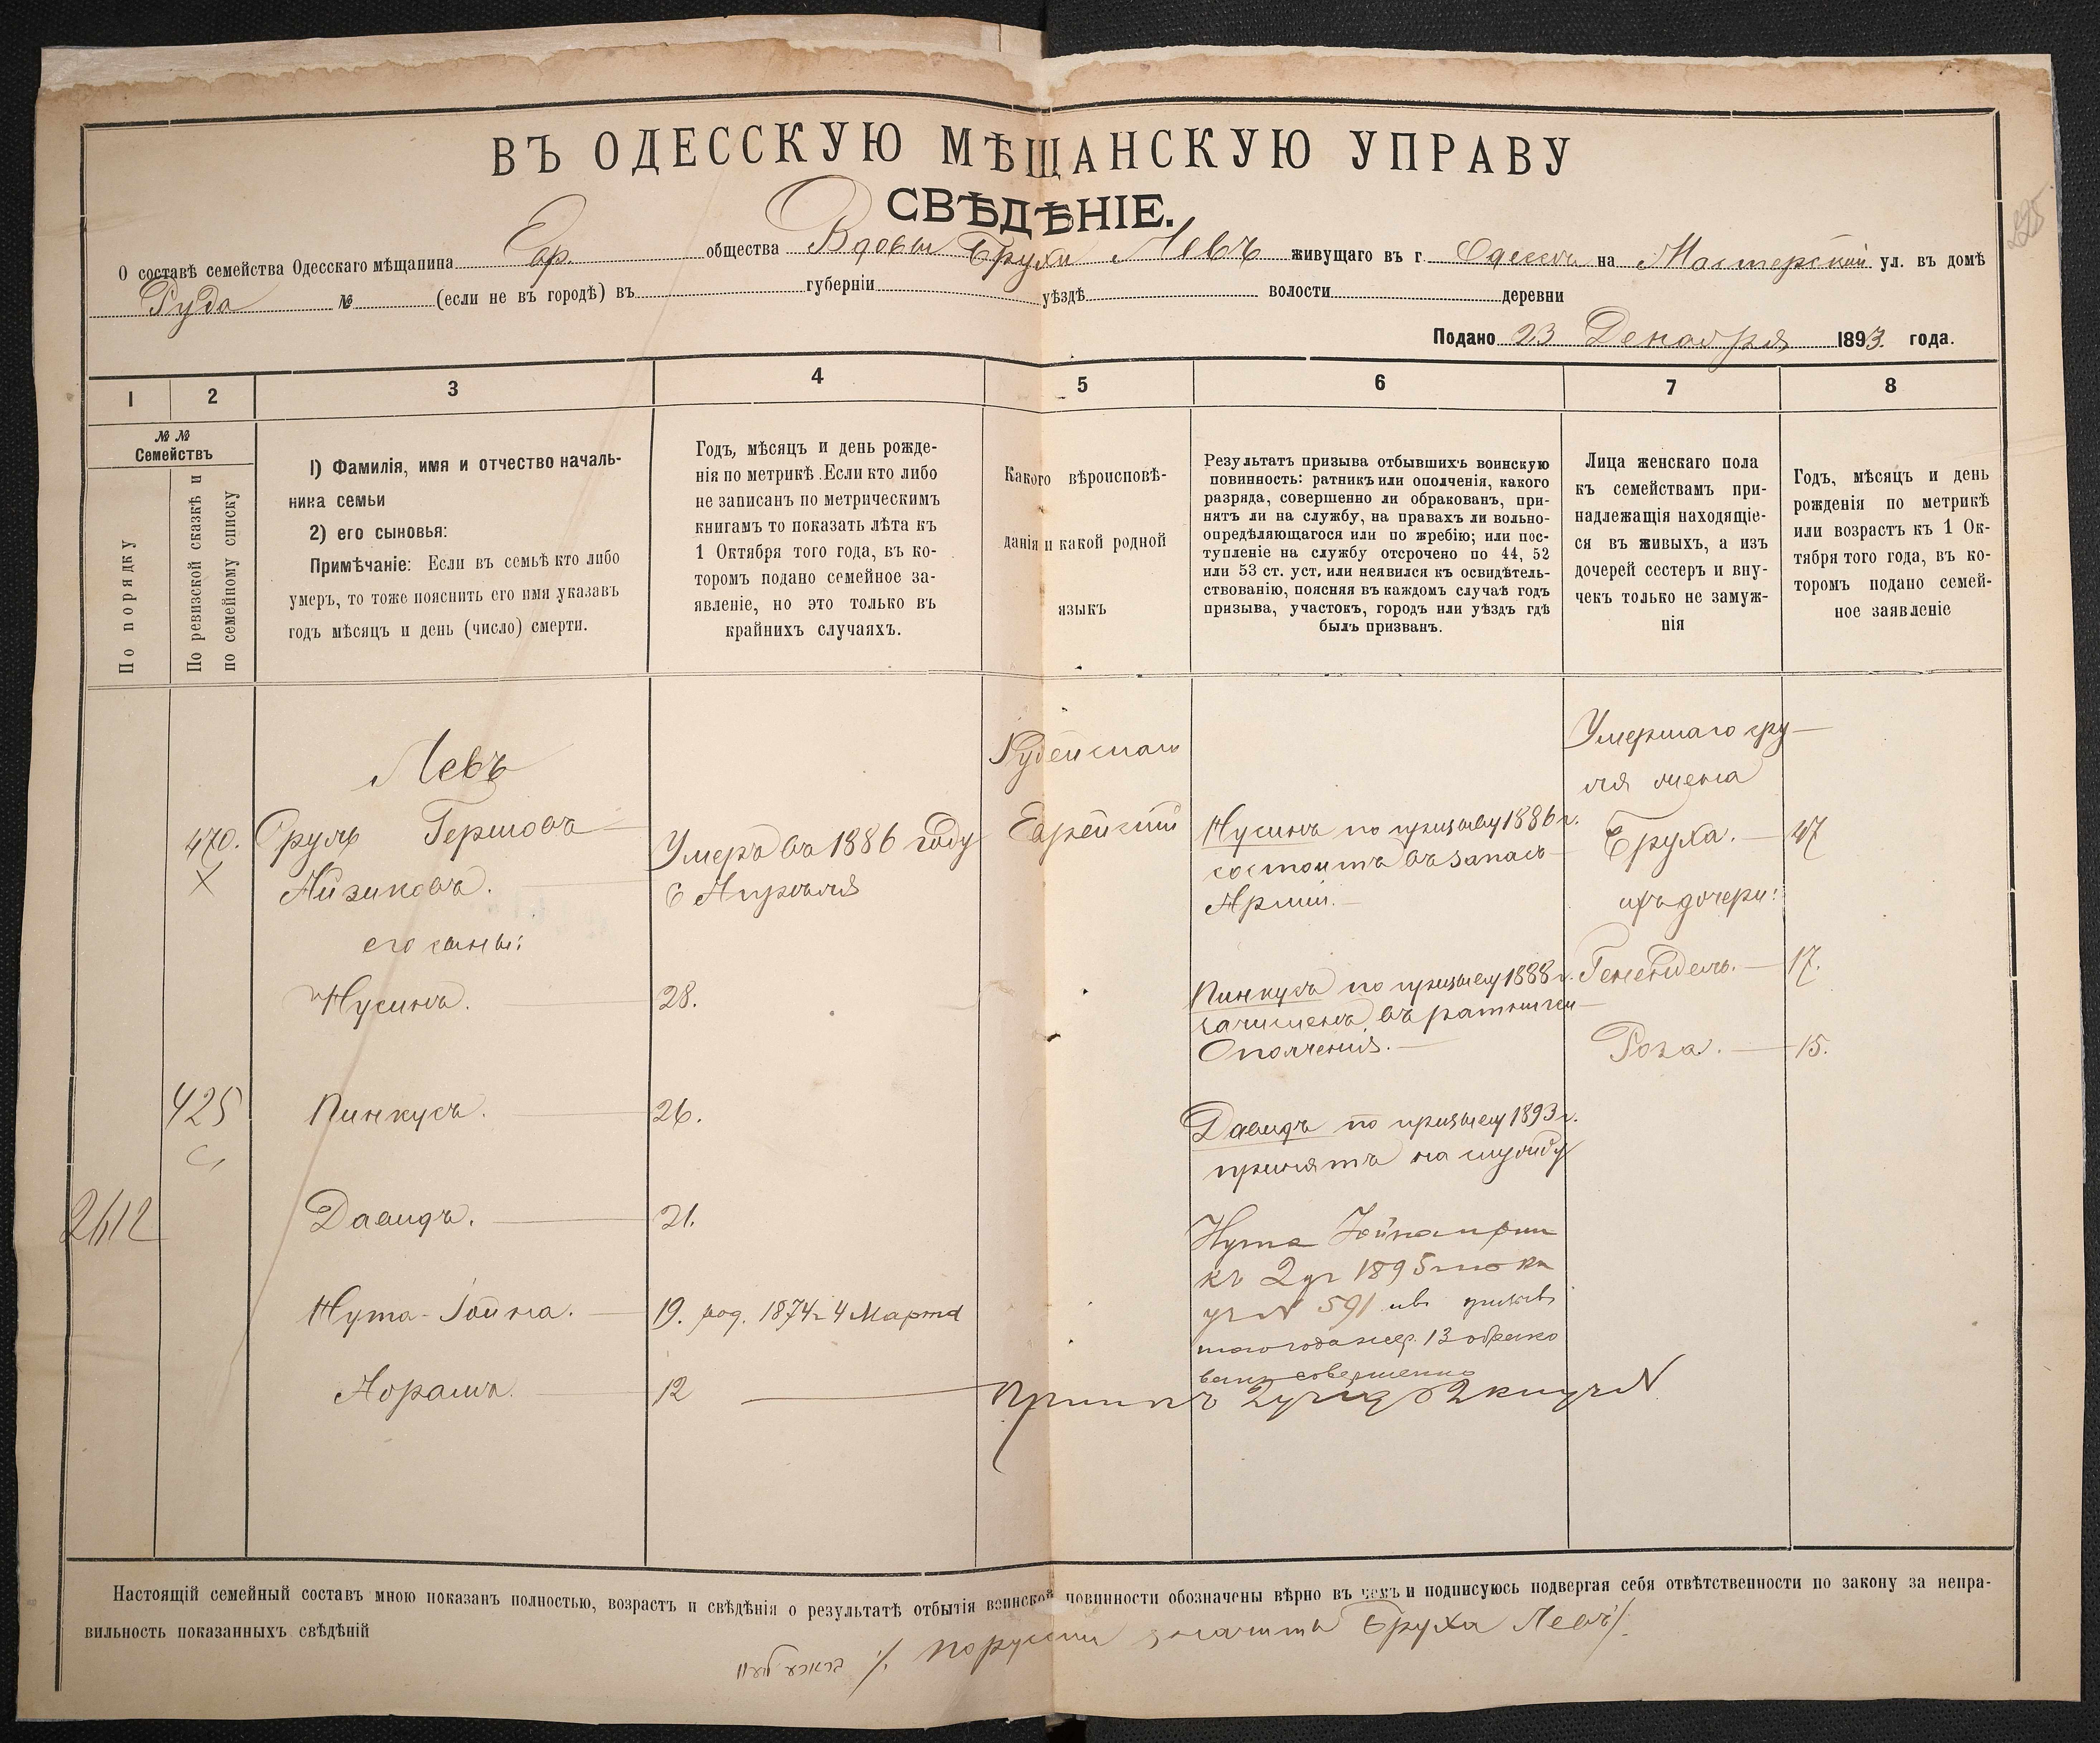 ВЪ ОДЕССКУЮ МѢЩАНСКУЮ УПРАВУ
СВѢДѢНІЕ.
О составѣ семейства Одесскаго мѣщанина Евр. общества Вдовы Брухи Левъ живущаго въ г. Одессѣ на Мастерской ул. въ домѣ
Руда № (если не въ городѣ) въ губерніи уѣздѣ волости деревни
Подано 23 Декабря 1893 года.
1 2 3 4 5 6 7 8
№ №
Семействъ
По порядку
По ревизской сказкѣ и
по семейному списку
1) Фамилія, имя и отчество началь-
ника семьи
2) его сыновья:
Примѣчаніе: Если въ семьѣ кто либо
умеръ, то тоже пояснить его имя указавъ
годъ мѣсяцъ и день (число) смерти.
Годъ, мѣсяцъ и день рожде-
нія по метрикѣ. Если кто либо
не записанъ по метрическимъ
книгамъ то показать лѣта къ
1 Октября того года, въ ко-
торомъ подано семейное за-
явленіе, но это только въ
крайнихъ случаяхъ.
Какого вѣроисповѣ-
данія и какой родной
языкъ
Результатъ призыва отбывшихъ воинскую
повинность: ратникъ или ополченія, какого
разряда, совершенно ли обракованъ, при-
нятъ ли на службу, на правахъ ли вольно-
опредѣляющагося или по жребію; или пос-
тупленіе на службу отсрочено по 44, 52
или 53 ст. уст. или неявился къ освидѣтель-
ствованію, поясняя въ каждомъ случаѣ годъ
призыва, участокъ, городъ или уѣздъ гдѣ
былъ призванъ.
Лица женскаго пола
къ семействамъ при-
надлежащія находящіе-
ся въ живыхъ, а изъ
дочерей сестеръ и вну-
чекъ только не замуж-
нія
Годъ, мѣсяцъ и день
рожденія по метрикѣ
или возрастъ къ 1 Ок-
тября того года, въ ко-
торомъ подано семей-
ное заявленіе
Левъ
470. Сруль Гершовъ
X Айзиковъ.
его сыны:
Нусинъ.
425 Пинкусъ.
2612 Давидъ.
Нута-Іойна.
Абрамъ.
Умеръ въ 1886 году
6 Апрѣля
28.
26.
21.
19. род. 1874 г 4 Марта
12
Іудейскаго
Еврейскій
Нусинъ по призыву 1886 г.
состоитъ въ запасѣ
Арміи.
Пинкусъ по призыву 1888 г.
зачисленъ въ ратники
Ополченія.
Давидъ по призыву 1893 г.
принятъ на службу
Нута Іойна
къ 2 уч 1895
уч № 591
13 обрако
ванъ совершенно
Умершаго Сру-
ля жена
Бруха. 47
ихъ дочери:
Генендель. 17.
Роза. 15.
Настоящій семейный составъ мною показанъ полностью, возрастъ и свѣдѣнія о результатѣ отбытія воинской повинности обозначены вѣрно въ чемъ и подписуюсь подвергая себя отвѣтственности по закону за непра-
вильность показанныхъ свѣдѣній
по русски значитъ Бруха Левъ